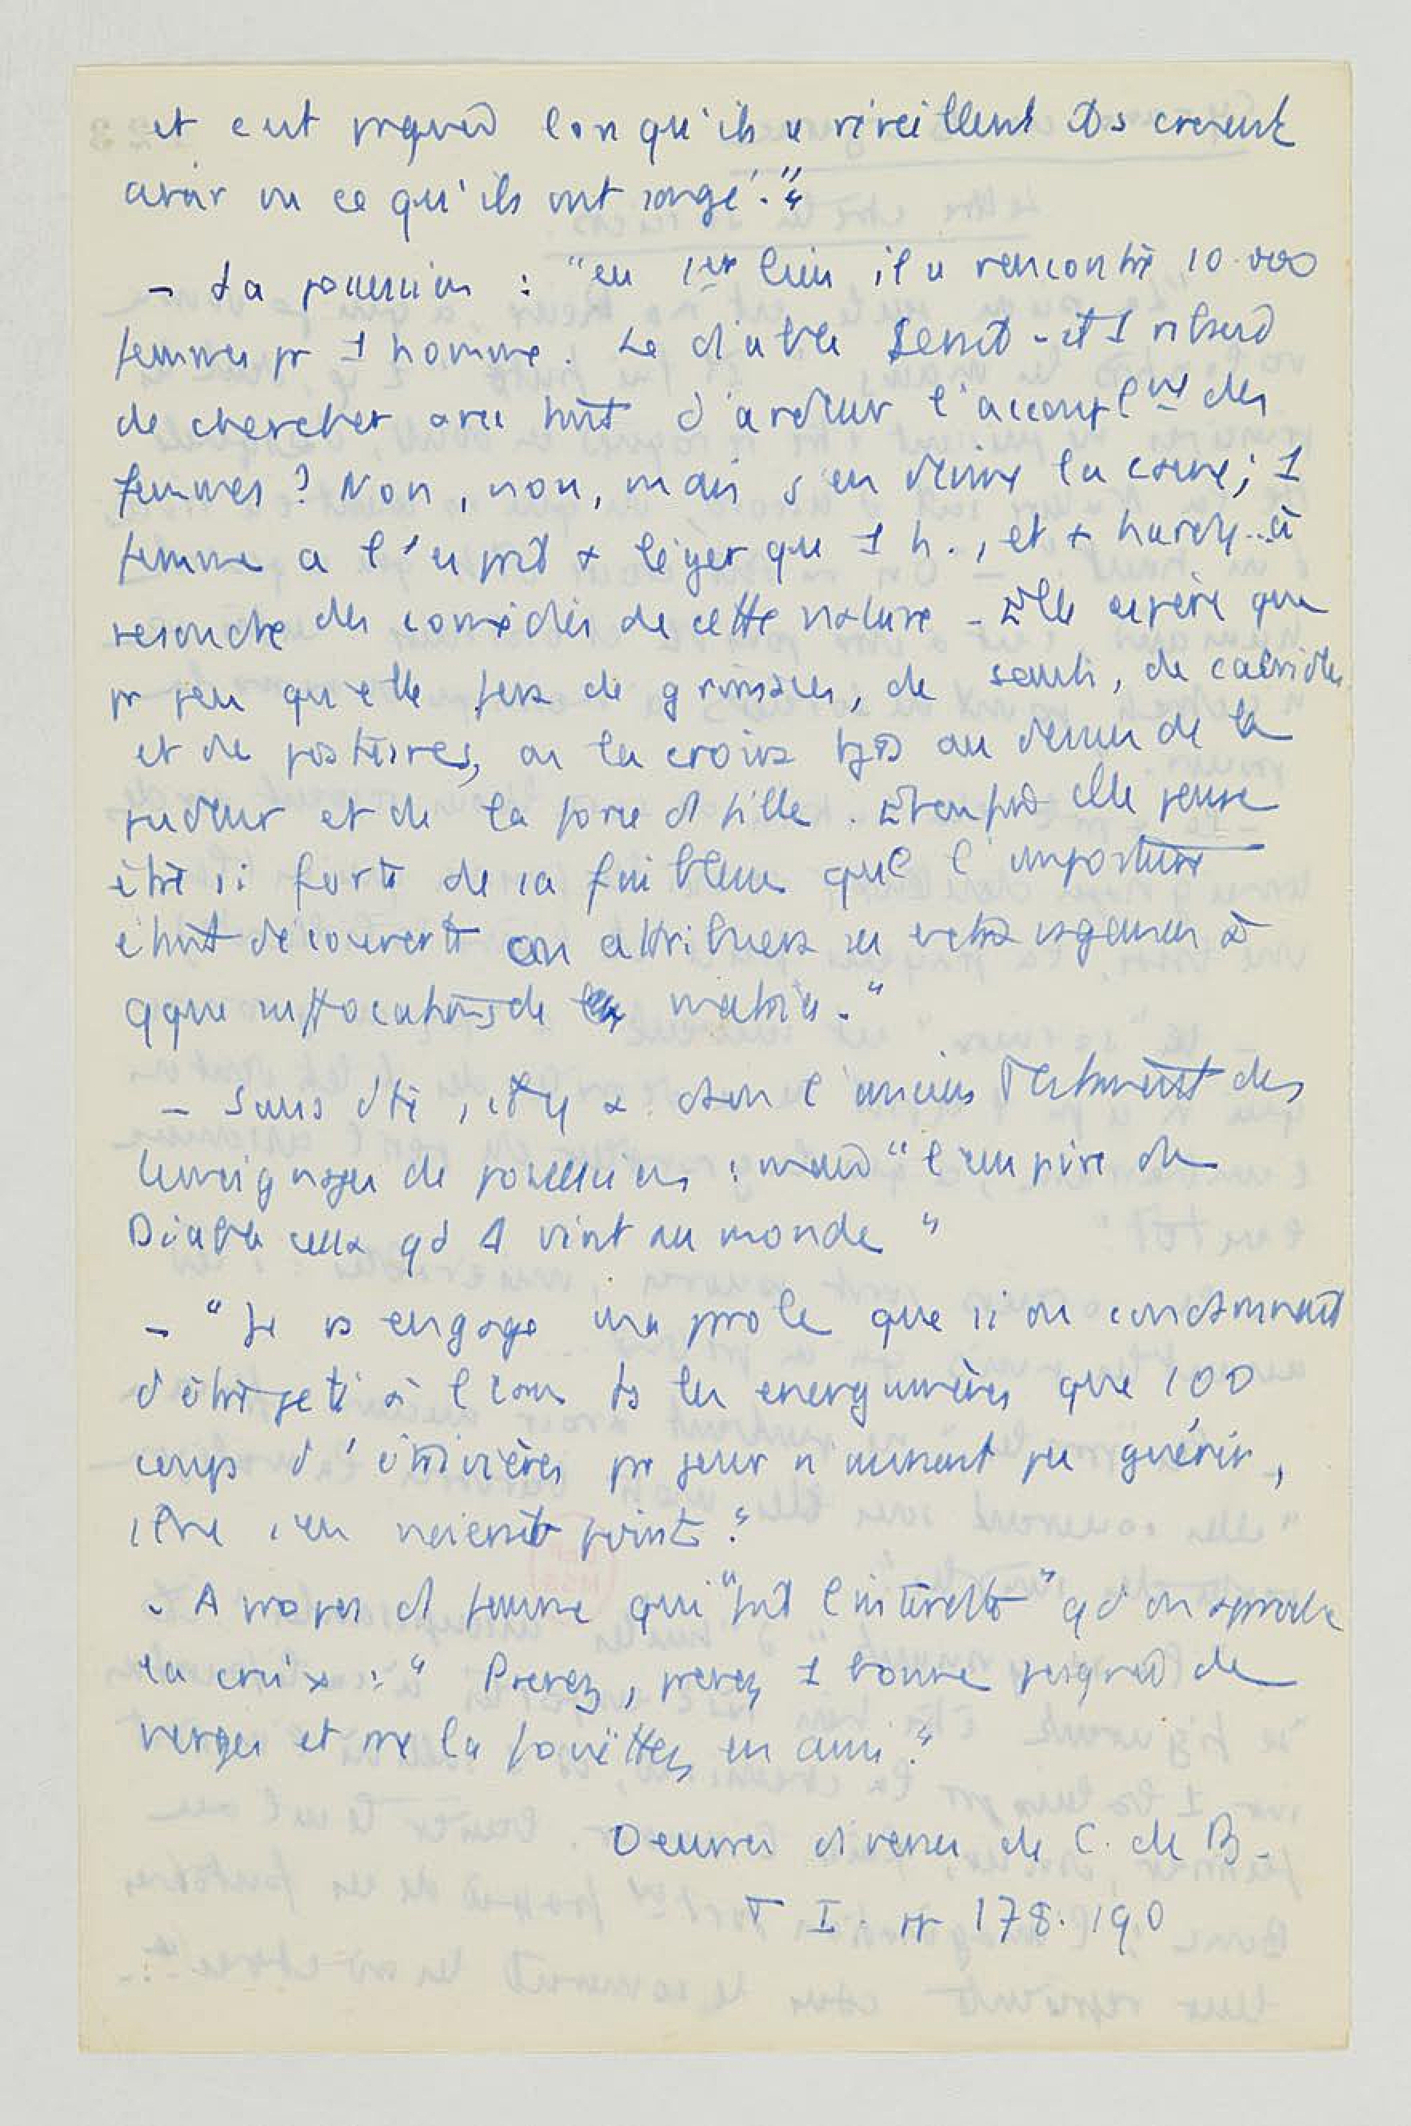 et c'est pquoi lorsqu'ils se réveillent ils croient
avoir vu ce qu'ils ont songé."
- La possession : "en 1er lieu il se rencontre 10.000
femmes pr 1 homme. Le diable serait-il 1 ribaud
de chercher avec tant d'ardeur l'accouplmt des
femmes ? Non, non, mais j'en devine la cause; 1
femme a l'esprit + léger que 1 h., et + hardy.. à
resoudre des comédies de cette nature - Elle espère que
pr peu qu'elle fera de grimaces, de sauts, de cabrioles
et de postures, on la croira bp au dessus de la
pudeur et de la force d'1 fille. Et enfin elle pense
être si forte de sa faiblesse que l'imposture
étant découverte on attribuera ses extravagances à
qque suffocations de la matrice."
- Sans dte, il y a dans l'ancien Testament des
témoignages de possessions : mais "l'empire du
Diable cessa qd X vint au monde"
- "Je vs engage ma parole que si on condamnait
d'être jeté à l'eau ts les energumènes que 100
coups d'étrivières pr jour n'auraient pu guérir,
il ne s'en noierait point."
- A propos d'1 femme qui "fait l'interdite" qd on approche
la croix : " Prenez, prenez 1 bonne poignée de
verges et me la fouëttez en ami."
Oeuvres diverses de C. de B.
T I. pp 178.190